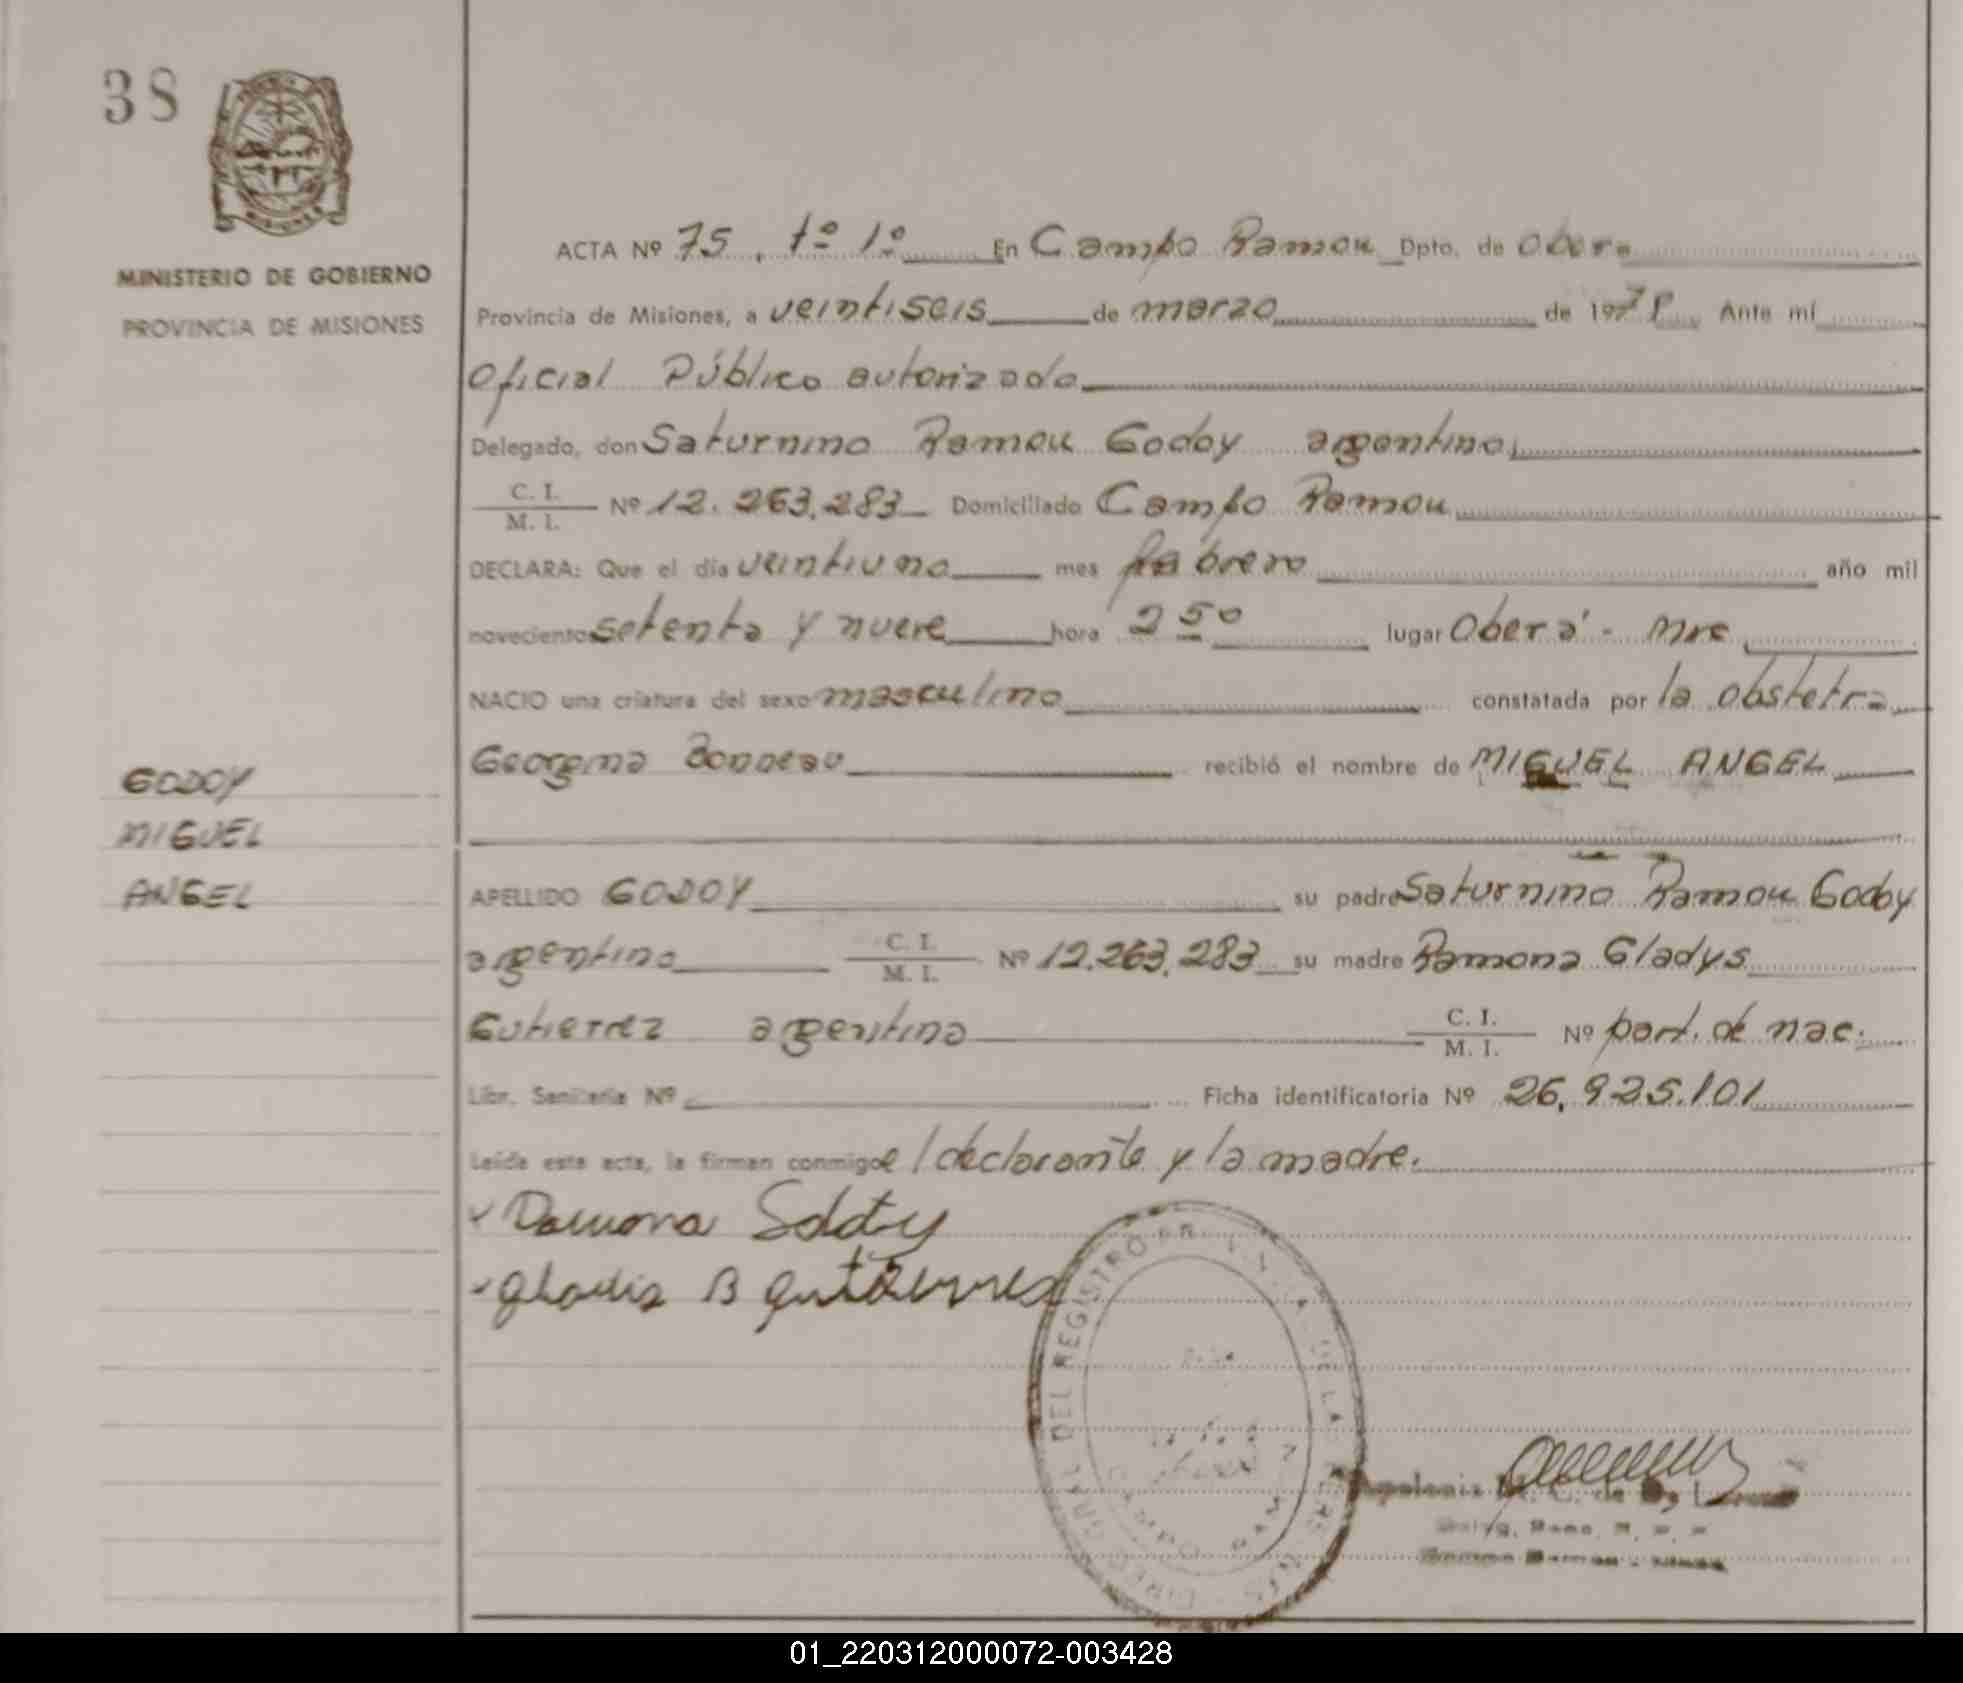 38
MINISTERIO DE GOBIERNO
PROVINCIA DE MISIONES
ACTA Nº 75. tº 1º En Campo Ramon Dpto. de Obera
Provincia de Misiones, a veintiseis de marzo de 197 Ante mí
Oficial Público autorizado
Delegado, don Saturnino Ramon Godoy argentino,
C. I. / M. I. Nº 12.263.283 Domiciliado Campo Ramon
DECLARA: Que el día veintiuno mes febrero año mil
novecientos setenta y nueve hora 2 50 lugar Oberá - Mnes
NACIO una criatura del sexo masculino constatada por la obstetra
Georgina Bonneau recibió el nombre de MIGUEL ANGEL
GODOY
MIGUEL
ANGEL
APELLIDO GODOY su padre Saturnino Ramon Godoy
argentino C. I. / M. I. Nº 12.263.283 su madre Ramona Gladys
Gutierrez argentina C. I. / M. I. Nº part. de nac.
Libr. Sanitaria Nº Ficha identificatoria Nº 26.925.101
Leída esta acta, la firman conmigo el declarante y la madre.
Gladis B Gutierrez
DEL REGISTRO PR. DE LAS PERSONAS
Apolonia M. C. de
01_220312000072-003428